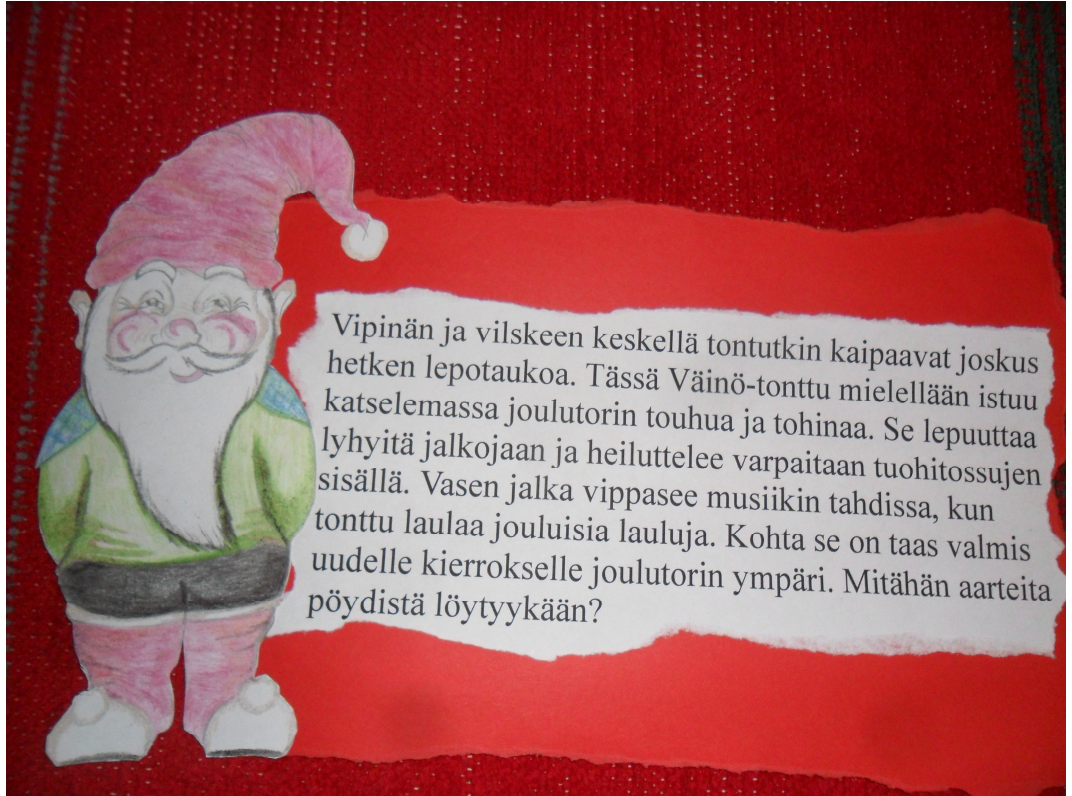 Vipinän ja vilskeen keskellä tontutkin kaipaavat joskus
hetken lepotaukoa. Tässä Väinö-tonttu mielellään istuu
katselemassa joulutorin touhua ja tohinaa. Se lepuuttaa
lyhyitä jalkojaan ja heiluttelee varpaitaan tuohitossujen
sisällä. Vasen jalka vippasee musiikin tahdissa, kun
tonttu laulaa jouluisia lauluja. Kohta se on taas valmis
uudelle kierrokselle joulutorin ympäri. Mitähän aarteita
pöydistä löytyykään?